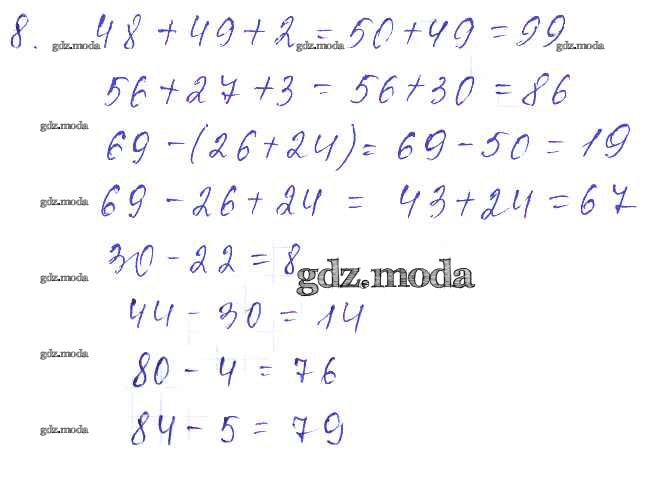 8. gdz.moda 48 + 49 + 2 gdz.moda = 50 + 49 = 99 gdz.moda
56 + 27 + 3 = 56 + 30 = 86
gdz.moda 69 - (26 + 24) = 69 - 50 = 19
gdz.moda 69 - 26 + 24 = 43 + 24 = 67
gdz.moda 30 - 22 = 8 gdz.moda
44 - 30 = 14
gdz.moda 80 - 4 = 76
gdz.moda 84 - 5 = 79